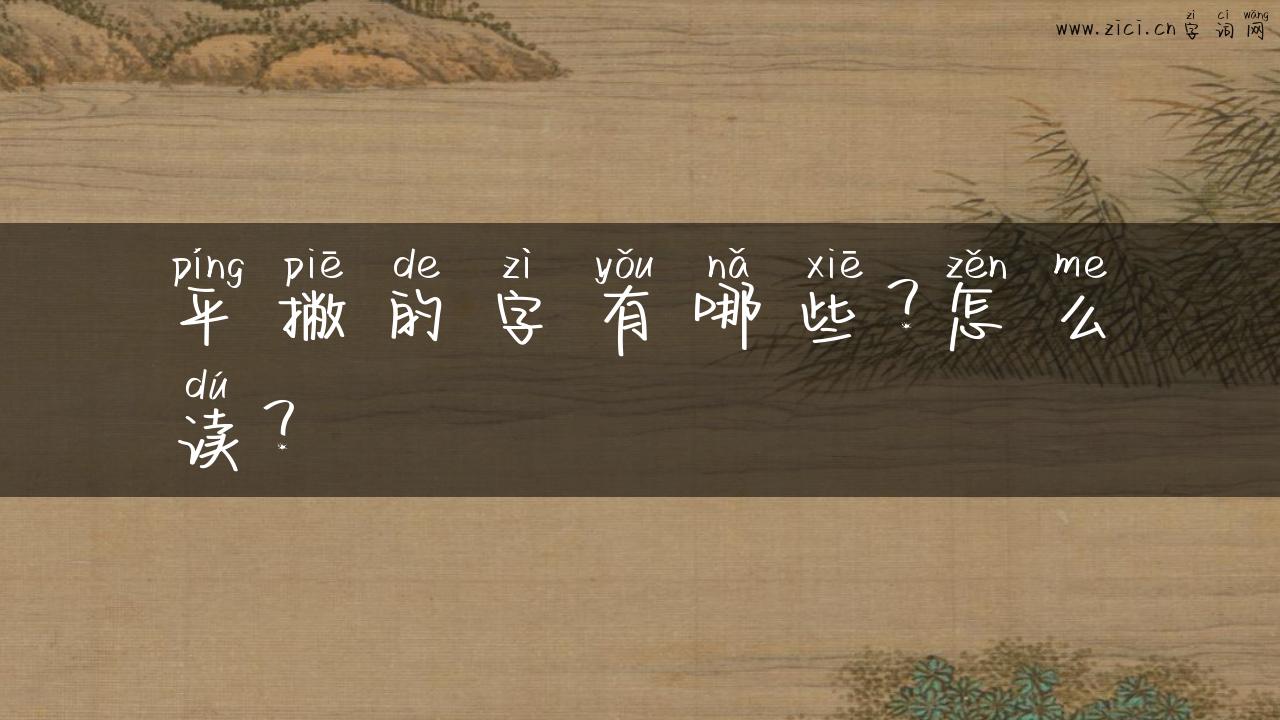 zì cí wǎng
www.zici.cn 字词网
píng piē de zì yǒu nǎ xiē zěn me
平撇的字有哪些?怎么
dú
读?